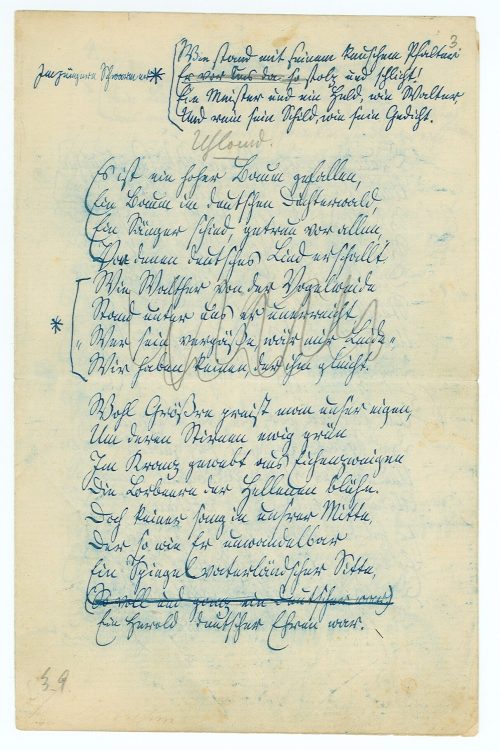 3.
Wie stand mit seinem keuschen Psalter
Im jüngern Schwarme *
Er vor uns da so stolz und schlicht!
Ein Meister und ein Held, wie Walter
Und rein sein Schild, wie sein Gedicht.
Uhland.
Es ist ein hoher Baum gefallen,
Ein Baum im deutschen Dichterwald,
Ein Sänger schied, getreu vor allen,
Von denen deutsches Lied erschallt
Wie Walther von der Vogelweide
Stand unter uns er unerreicht
*
„Wer sein vergäße, wär mir Leide“
Wir haben keinen, der ihm gleicht.
Wohl Größre preist man unser eigen,
Um deren Stirnen ewig grün
Im Kranz gewebt aus Eichenzweigen
Die Lorbeern der Hellenen blühn.
Doch keiner sang in unsrer Mitte,
Der so wie Er unwandelbar
Ein Spiegel vaterländscher Sitte,
(So voll und ganz ein Deutscher war)
Ein Herold deutscher Ehren war.
3.9